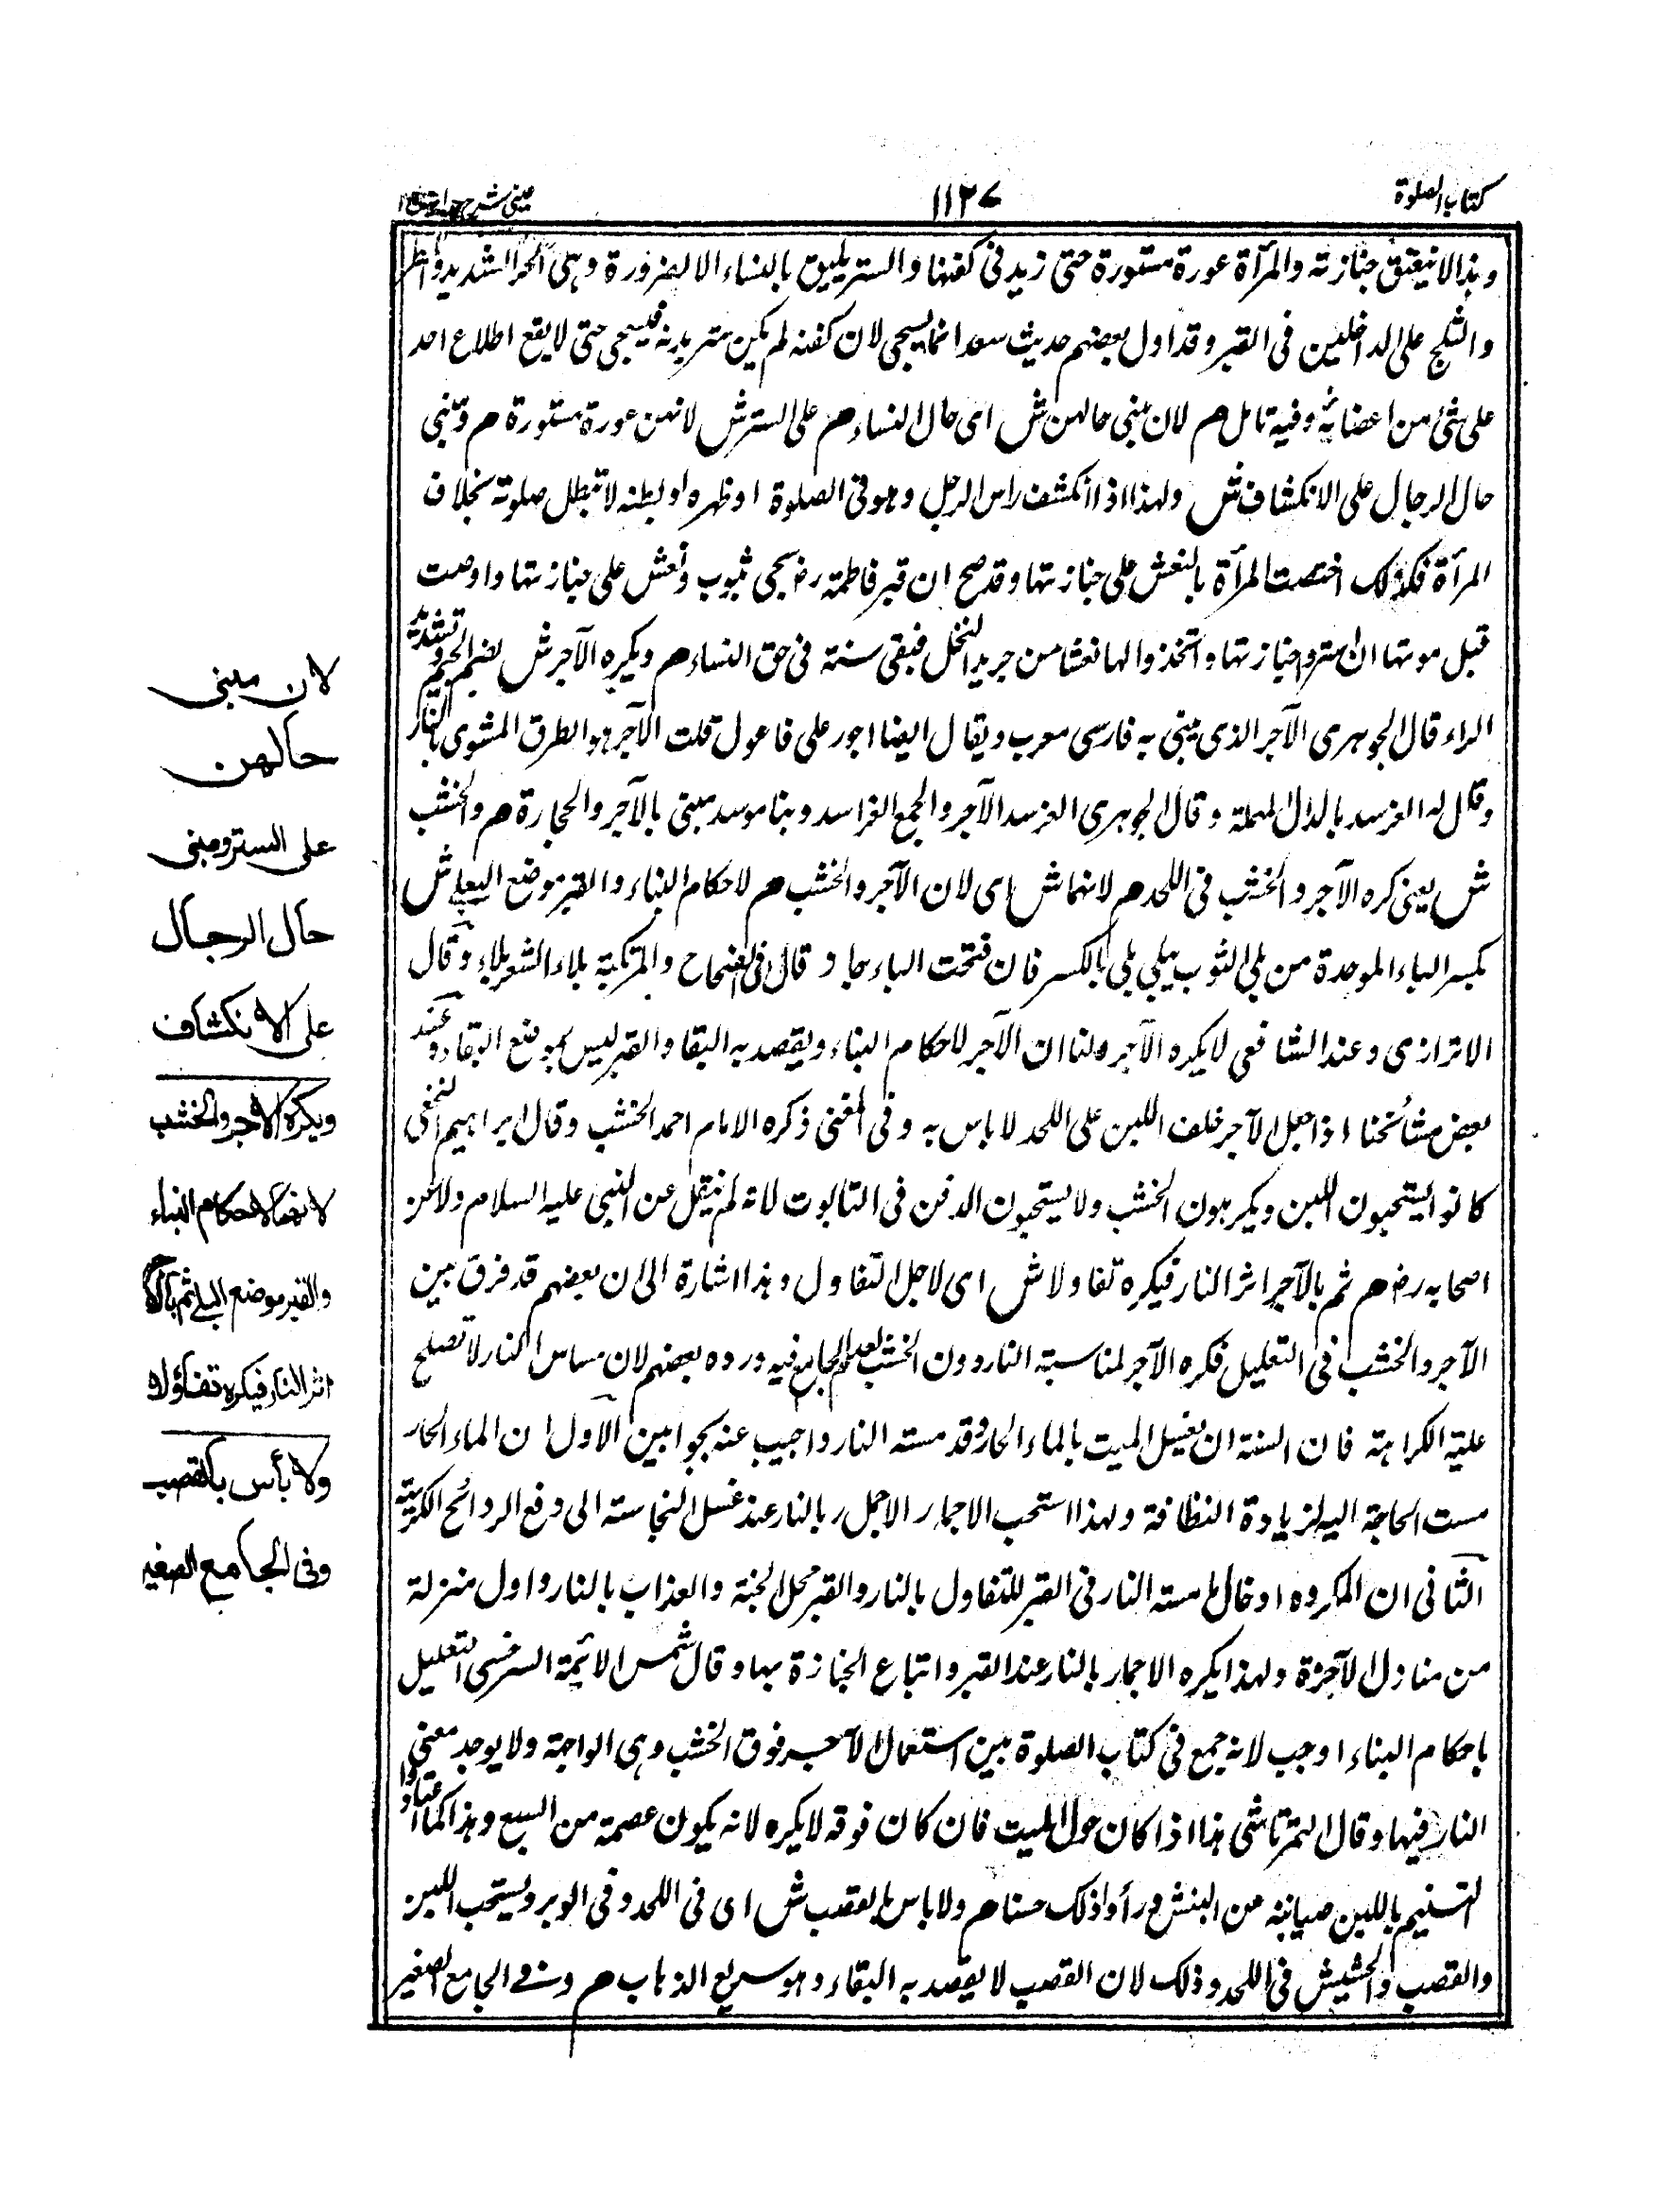 كتاب الصلوة
١١٢٧
عينى شرح هداية ج ١
وبذا لا نيعتق جنازته والمرأة عورة مستورة حتى زيد فى كفنها والستر يليق بالنساء الا لضرورة وهى الحر الشديد والمطر
والثلج على الداخلين فى القبر وقد اول بعضهم حديث سعد انما يسجى لان كفنه لم يكن ستر بدنه فيسجى حتى لا يقع اطلاع احد
على شئ من اعضائه وفيه تامل هم لان مبنى حالهن ش اى حال النساء هم على الستر ش لانهن عورة مستورة هم ومبنى
حال الرجال على الانكشاف ش ولهذا اذا انكشف راس الرجل وهو فى الصلوة او ظهره او بطنه لا تبطل صلوته بخلاف
المرأة فكذلك اختصت المرأة بالنعش على جنازتها وقد صح ان قبر فاطمة رض سجى بثوب ونعش على جنازتها واوصت
قبل موتها ان تستر جنازتها واتخذوا لها نعشا من جريد النخل فبقى سنة فى حق النساء هم ويكره الآجر ش بضم الجيم وتشديد
الراء قال الجوهرى الآجر الذى يبنى به فارسى معرب ويقال ايضا اجور على فاعول قلت الآجر هو الطوب المشوى بالنار
وقال له الغرسد بالدال المهملة وقال الجوهرى الغرسد الآجر والجمع الغراسد وبناء موسد مبنى بالآجر والحجارة هم والخشب
ش يعنى كره الآجر والخشب فى اللحد هم لانهما ش اى لان الآجر والخشب هم لاحكام البناء والقبر موضع البلى ش
بكسر الباء الموحدة من بلى الثوب يبلى بلى بالكسر فان فتحت الباء جا و قال فى الصحاح والمركبة بلاء الشعر بلاء وقال
الاترازى وعند الشافعى لا يكره الآجر ولنا ان الآجر لاحكام البناء ويقصد به البقا والقبر ليس بموضع البقاء وعند
بعض مشائخنا اذا جعل الآجر خلف اللبن على اللحد لا باس به وفى المغنى ذكره الامام احمد الخشب وقال ابراهيم النخعى
كانوا يستحبون اللبن ويكرهون الخشب ولا يستحبون الدفن فى التابوت لانه لم ينقل عن النبى عليه السلام ولا عن
اصحابه رض هم ثم بالآجر اثر النار فيكره تفاولا ش اى لاجل التفاول وهذا اشارة الى ان بعضهم قد فرق بين
الآجر والخشب فى التعليل فكره الآجر لمناسبة النار دون الخشب لعدم الجامع فيه ورده بعضهم لان مساس النار لا تصلح
علية الكراهة فان السنة ان يغسل الميت بالماء الحار وقد مسته النار واجيب عنه بجوابين الاول ان الماء الحار
مست الحاجة اليه لزيادة النظافة ولهذا استحب الاجمار الاجمل ربالنار عند غسل النجاسة الى دفع الروائح الكريهة
الثانى ان المكروه ادخال ما مسته النار فى القبر للتفاول بالنار والقبر محل الجنة والعذاب بالنار واول منزلة
من منازل الآخرة ولهذا يكره الاجمار بالنار عند القبر واتباع الجنازة بها وقال شمس الائمة السرخسى التعليل
باحكام البناء اوجب لانه جمع فى كتاب الصلوة بين استعمال الآجر فوق الخشب وهى الواجة ولا يوجد معنى
النار فيها وقال التمرتاشى هذا اذا كان حول الميت فان كان فوقه لا يكره لانه يكون عصمة من السبع وهذا كما اعتادوا
التسنيم باللبن صيانة من النبش و رأوا ذلك حسنا هم ولا باس بالقصب ش اى فى اللحد وفى الوبر ويستحب اللبن
والقصب والحشيش فى اللحد وذلك لان القصب لا يقصد به البقاء وهو سريع الذهاب هم وفى الجامع الصغير
لان مبنى
حالهن
على الستر ومبنى
حال الرجال
على الانكشاف
ويكره الآجر والخشب
لانهما لاحكام البناء
والقبر موضع البلى ثم بالآجر
اثر النار فيكره تفاؤلا
ولا بأس بالقصب
وفى الجامع الصغير